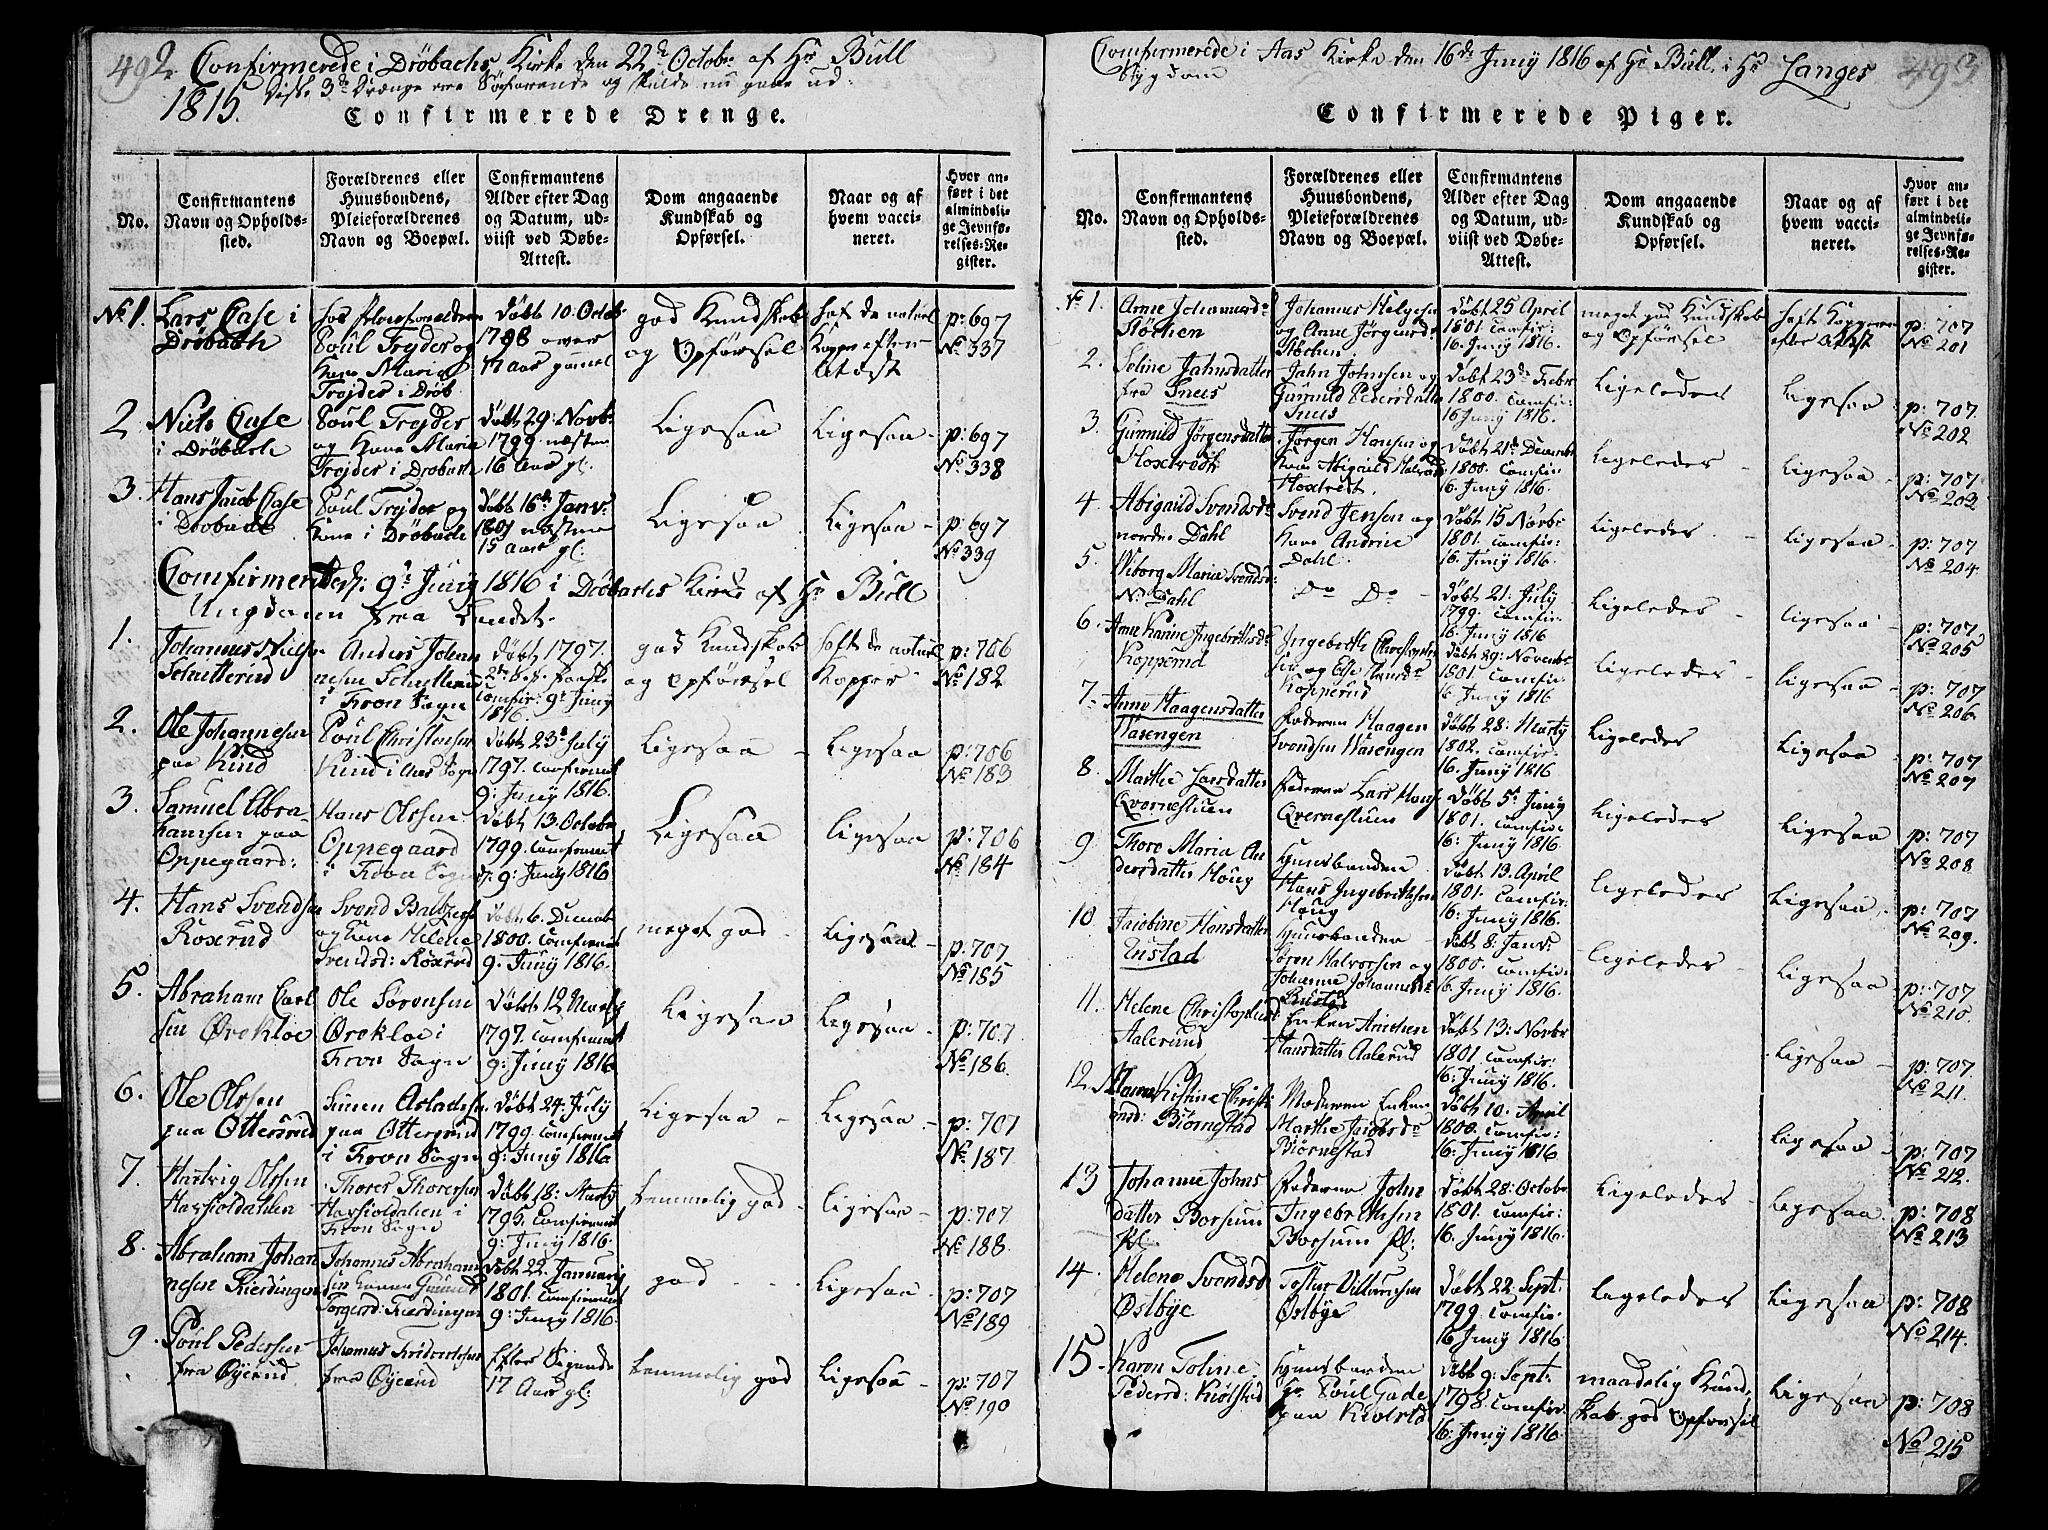 492. Confirmerede i Dröbachs Kirke den 22de Octobr af Hr Bull
1815. Disse 3de Drænge ere Söefarende og skulde nu gaae ud.
Confirmerede Drenge.
No.
Confirmantens
Navn og Opholds-
sted.
Forældrenes eller
Huusbondens,
Pleieforældrenes
Navn og Boepæl.
Confirmantens
Alder efter Dag
og Datum, ud-
viist ved Døbe-
Attest.
Dom angaaende
Kundskab og
Opførsel.
Naar og af
hvem vacci-
neret.
Hvor an-
ført i det
almindeli-
ge Jevnfø-
relses-Re-
gister.
No 1. Lars Case i
Dröbach
Poul Trojder og
Kone Maria
Trojder i Dröb.
Döbt 10 Octob:
1798 over
17 Aar gammel
god Kundskab
og Opförsel
haft de naturl
Kopper efter
Attest
p: 697
No 337
2 Niels Case
i Dröbach
Poul Trojder
og Kone Maria
Trojder i Dröbach
Döbt 29: Novbr
1799 næsten
16 Aar gl:
Ligesaa
Ligesaa
p: 697
No 338
3. Hans Jacob Case
i Dröbach
Poul Trojder og
Kone i Dröbach
Döbt 16de Janv:
1801 næsten
15 Aar gl:
Ligesaa
Ligesaa
p: 697
No 339
Confirmerede d: 9de Juny 1816 i Dröbachs Kirke af Hr Bull
Ungdommen fra Landet.
1. Johannes Niels
Schutterud
Anders Johan
nesen Schutterud
i Frou Sogn
Döbt 1797.
Confir: 9de Juny
1816.
god Kundskab
og Opförsel
haft de naturl
Kopper
p: 706
No 182
2. Ole Johannesen
paa Kind
Poul Christensen
Kind i Aas Sogn
Döbt 23de July
1797. Confirmert
9: Juny 1816.
Ligesaa
Ligesaa
p: 706
No 183
3. Samuel Abra
hamsen paa
Oppegaard:
Hans Olssen
Oppegaard
i Frou Sogn
Döbt 13. Octobr
1799. Confirmert
d. 9: Juny 1816
Ligesaa
Ligesaa
p: 706
No 184
4. Hans Svendsen
Roxrud
Svend Baltzers
og Kone Helene
Svendsd: Roxrud
Döbt 6. Decemb
1800. Confirmert
9. Juny 1816.
meget god
Ligesaa
p: 707
No 185
5. Abraham Carl
sen Örekloe
Ole Sörensen
Örekloe i
Frou Sogn
Döbt 12 Marty
1797. Confirmert
9: Juny 1816
Ligesaa
Ligesaa
p: 707
No 186
6. Ole Olssen
paa Ottersrud
Simen Aslaksen
paa Ottersrud
i Frou Sogn
Döbt 24: July
1799. Confirmert
9: Juny 1816
Ligesaa
Ligesaa
p: 707
No 187
7. Hartvig Olssen
Havsioldahlen
Thorer Thorersen
Havsioldahlen i
Frou Sogn
Döbt 18: Marty
1795. Confirmert
9: Juny 1816.
temmelig god
Ligesaa
p: 707
No 188.
8. Abraham Johan
nesen Fierdingen
Johannes Abraham
sen Konen Gunild
Torgersd: Fierdingen
Döbt 22. January
1801. Confirmert
9: Juny 1816.
god
Ligesaa
p: 707
No 189
9. Poul Pedersen
fra Öyerud
Johannes Fridrichsen
fra Öyerud
Efter Sigende
17 Aar gl:
temmelig god
Ligesaa
p: 707
No 190
Confirmerede i Aas Kirke den 16de Juny 1816 af Hr Bull, i Hr Langes
Sygdom
493
Confirmerede Piger.
No.
Confirmantens
Navn og Opholds-
sted.
Forældrenes eller
Huusbondens,
Pleieforældrenes
Navn og Boepæl.
Confirmantens
Alder efter Dag
og Datum, ud-
viist ved Døbe-
Attest.
Dom angaaende
Kundskab og
Opførsel.
Naar og af
hvem vacci-
neret.
Hvor an-
ført i det
almindeli-
ge Jevnfø-
relses-Re-
gister.
No 1. Anne Johannesdr
Stochen
Johannes Helgesen
og Anne Jörgensdr
Stochen
Döbt 25 April
1801 Comfir:
16. Juny 1816.
meget god Kundskab
og Opförsel
haft Kopperne
efter Attest
p: 707
No 201
2. Soline Jahnsdatter
fra Snees
Jahn Johnsen og
Gunnild Pedersdatter
Snees
Döbt 23de Febr
1800. Comfir:
16 Juny 1816.
Ligeledes
Ligesaa
p: 707.
No 202
3. Gunnild Jörgensdatter
Hoxtvedt
Jörgen Hansen og
Kone Abigaild Halvorsd
Hoxtvedt.
Döbt 21de Decembr
1800. Comfir:
16. Juny 1816.
Ligeledes
Ligesaa
p: 707
No 203
4 Abigaild Svendsdr
nordre Dahl
Svend Jensen og
Kone Andrine
Dahl.
Döbt 15 Novbr
1801. Comfir:
16. Juny 1816.
Ligeledes
Ligesaa
p: 707
No 204.
5. Wiborg Maria Svendsd:
N: Dahl
Do Do
Döbt 21. July
1799. Comfir
16. Juny 1816
Ligeledes
Ligesaa
p: 707.
No 205
6. Anne Karine Ingebrethsdr
Kopperud
Ingebreth Christophe
sen og Else Hansdr
Kopperud
Döbt 29: Novembr
1801 Comfir
16 Juny 1816
Ligeledes
Ligesaa
p: 707
No 206
7. Anne Haagensdatter
Wasengen
Faderen Haagen
Svendsen Wasengen
Döbt 28: Marty
1802. Comfir:
16. Juny 1816
Ligeledes
Ligesaa
p: 707
No 207
8. Marthe Larsdatter
Qvernesluen
Faderen Lars Hans
Qvernesluen
Döbt 5te Juny
1801. Comfir:
16: Juny 1816
Ligeledes
Ligesaa
p: 707
No 208
9 Thore Maria An
dersdatter Houg
Huusbonden
Hans Ingebrethsen
Houg
Döbt 13. April
1801. Comfir:
16: Juny 1816.
Ligeledes
Ligesaa
p: 707
No 209.
10. Jacobine Hansdatter
Enstad
Huusbonden
Sören Halvorsen og
Johanne Johannesdr
Döbt 8: Janv:
1800. Comfir:
16. Juny 1816.
Ligeledes
Ligesaa
p: 707
No 210.
11. Helene Christophersd
Aalerud
Enken Anichen
Hansdatter Aalerud
Döbt 13: Novbr
1801 Comfir:
16: Juny 1816.
Ligesaa
p: 707.
No 211.
12. Maren Kistine Christi
ansd: Biörnestad
Moderen Enken
Marthe Jacobsdr
Biörnestad
Döbt 10. April
1800. Comfir:
16: Juny 1816
Ligesaa
p: 707
No 212.
13 Johanne Johns
datter Borsum
pl:
Faderen John
Ingebrethsen
Borsum pl:
Döbt 28: Octobr
1801. Comfir:
16. Juny 1816.
Ligeledes
Ligesaa
p: 708
No 213
14. Helene Svendsd
Östbye
Östbye
Döbt 22. Sept:
1799. Comfir
16 Juny 1816
Ligeledes
Ligesaa
p: 708
No 214.
15. Karen Toline
Pedersd: Kiölstad
Huusbonden
Hr Poul Gade
paa Kiölstad
Döbt 9: Sept:
1798. Comfir:
16: Juny 1816.
maadelig Kund,
skab. god Opförsel
Ligesaa
p: 708
No 215